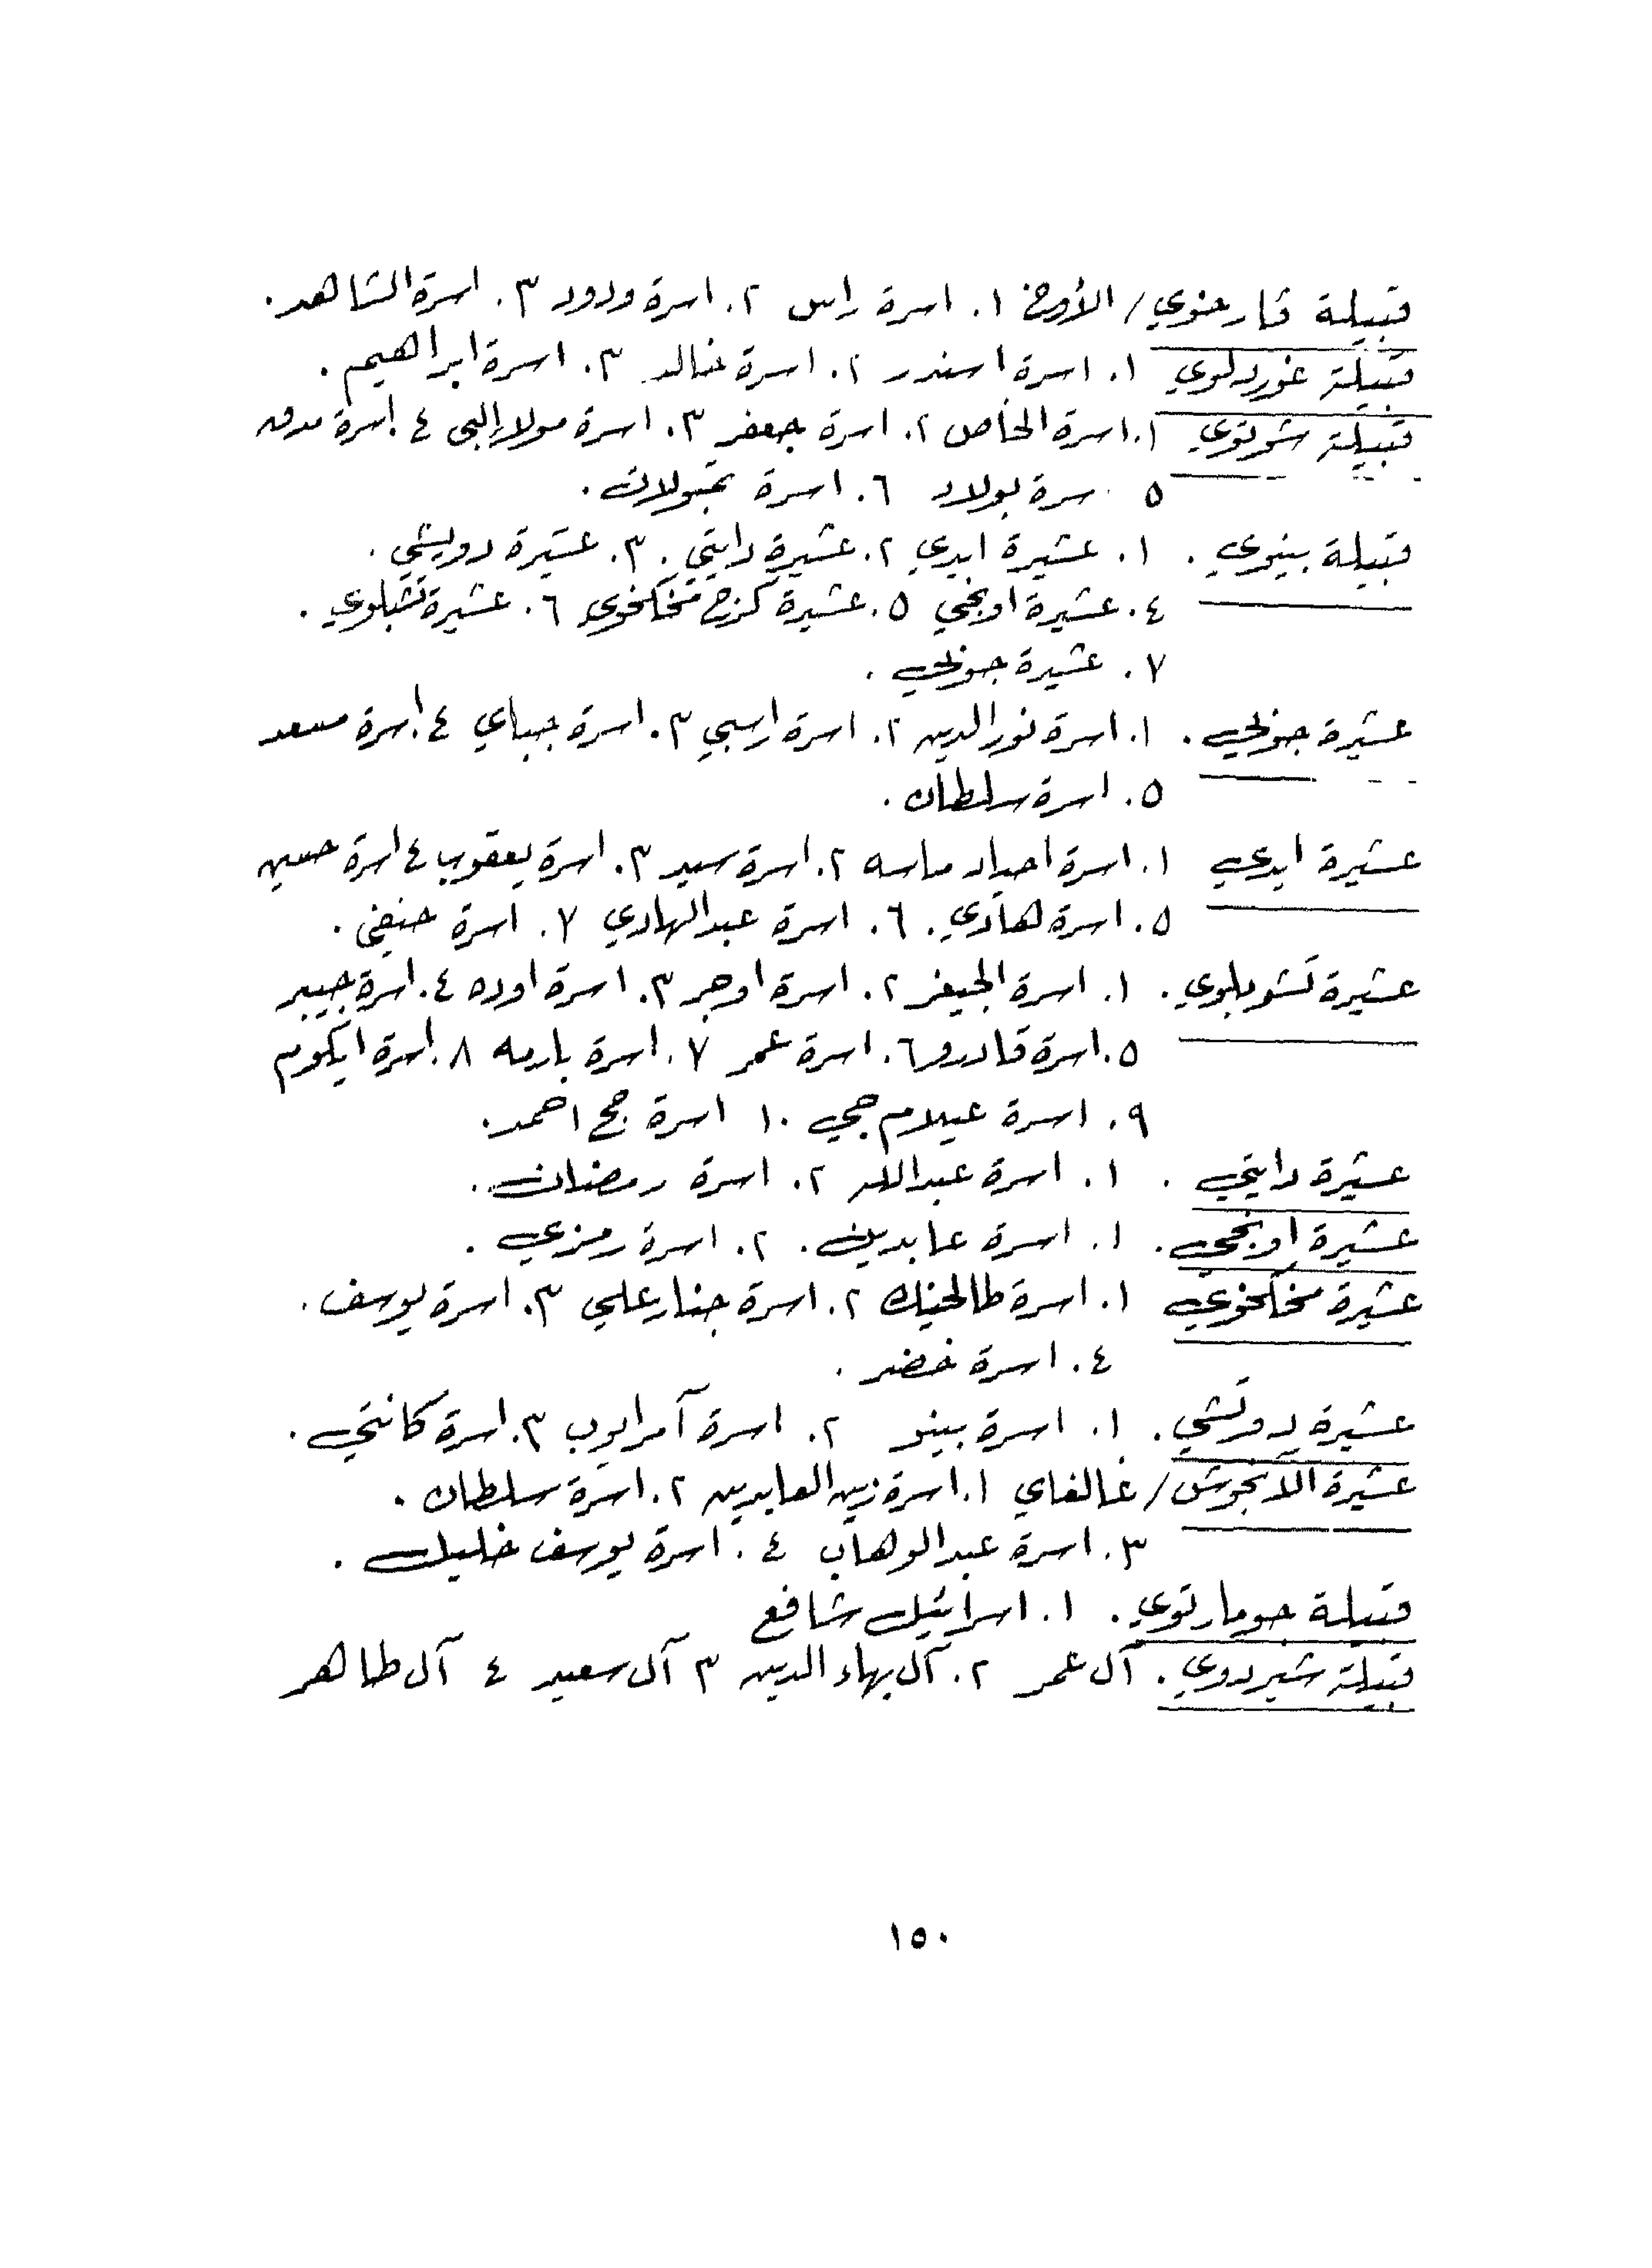 قبيلة قارخوي/ الأورخ ١. اسرة راس ٢. اسرة ودود ٣. اسرة الشاهد.
قبيلة غوردلوي ١. اسرة اسندر ٢. اسرة خالد ٣. اسرة ابراهيم.
قبيلة شوتوي ١. اسرة الخاص ٢. اسرة جعفر ٣. اسرة مولا ٤. اسرة
٥ سرة بولاد ٦. اسرة تمبولات.
قبيلة بينوي. ١. عشيرة ايدي ٢. عشيرة دايتي. ٣. عشيرة دويشي.
٤. عشيرة اونجي ٥. عشيرة كزح مخكخوي ٦. عشيرة تشبلوي.
٧. عشيرة جوني.
عشيرة جوني. ١. اسرة نور الدين ٢. اسرة ارسبي ٣. اسرة جباي ٤. اسرة مسعد
٥. اسرة سلطان.
عشيرة ايدي ١. اسرة احياد ماسه ٢. اسرة سيد ٣. اسرة يعقوب ٤ اسرة حسين
٥. اسرة هادي. ٦. اسرة عبد الهادي ٧. اسرة حنيفي.
عشيرة تشوبلوي. ١. اسرة الجيفر ٢. اسرة اوجر ٣. اسرة اوده ٤. اسرة جيبر
٥. اسرة قادرو ٦. اسرة عمر ٧. اسرة بارمه ٨. اسرة ايكوم
٩. اسرة عيلام جي ١٠ اسرة حج احمد.
عشيرة دايتي. ١. اسرة عبدالله ٢. اسرة رمضان.
عشيرة اونجي. ١. اسرة عابدين. ٢. اسرة رمزي.
عشيرة مخكخوي ١. اسرة طالحيك ٢. اسرة جنارعلي ٣. اسرة يوسف.
٤. اسرة خضر.
عشيرة دورتشي. ١. اسرة بينو ٢. اسرة آمرايوب ٣. اسرة كانتي.
عشيرة الانجوش/ غالغاي ١. اسرة زين العابدين ٢. اسرة سلطان.
٣. اسرة عبد الوهاب ٤. اسرة يوسف خليل.
قبيلة جومارتوي. ١. اسرائيل شافع
قبيلة شيردوي. آل عمر ٢. آل بهاء الدين ٣ آل سعيد ٤ آل طاهر
١٥٠